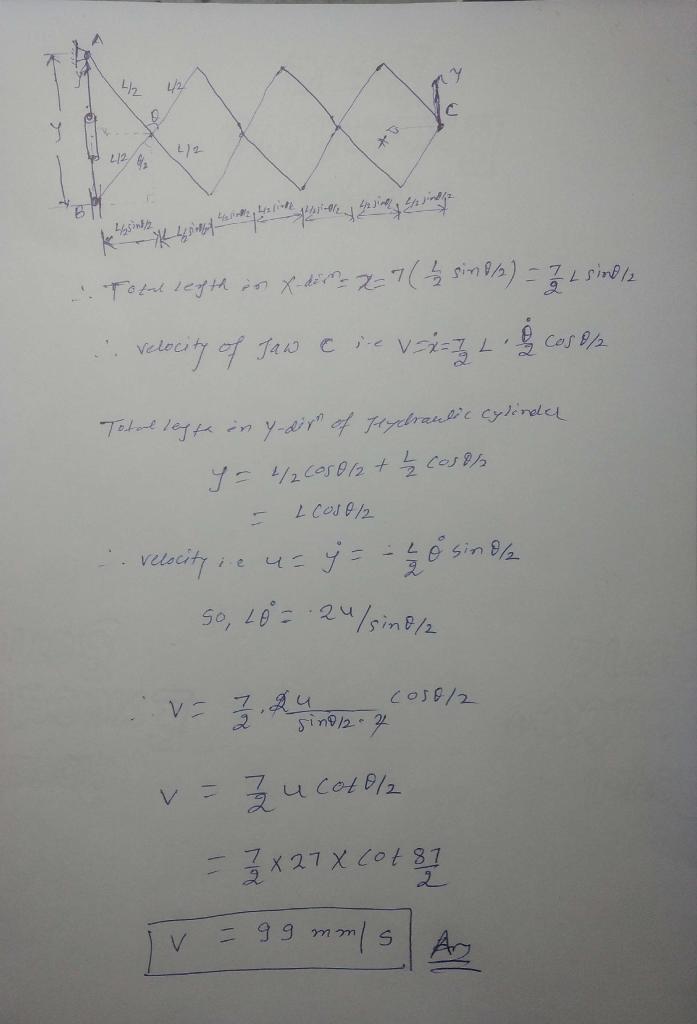 A
Y
L/2
L/2
θ
C
Y
L/2
L/2
θ/2
B
L/2 sinθ/2 L/2 sinθ/2 L/2 sinθ/2 L/2 sinθ/2 L/2 sinθ/2 L/2 sinθ/2 L/2 sinθ/2
∴ Total length in X-dirⁿ = x = 7(L/2 sinθ/2) = 7/2 L sinθ/2
∴ velocity of Jaw C i.e V = ẋ = 7/2 L · θ̇/2 cosθ/2
Total length in Y-dirⁿ of Hydraulic cylinder
y = L/2 cosθ/2 + L/2 cosθ/2
= L cosθ/2
∴ velocity i.e u = ẏ = - L/2 θ̇ sinθ/2
So, Lθ̇ = 2u/sinθ/2
∴ V = 7/2 · 2u/sinθ/2·2 cosθ/2
V = 7/2 u cotθ/2
= 7/2 x 27 x cot 87/2
V = 99 mm/s Ans